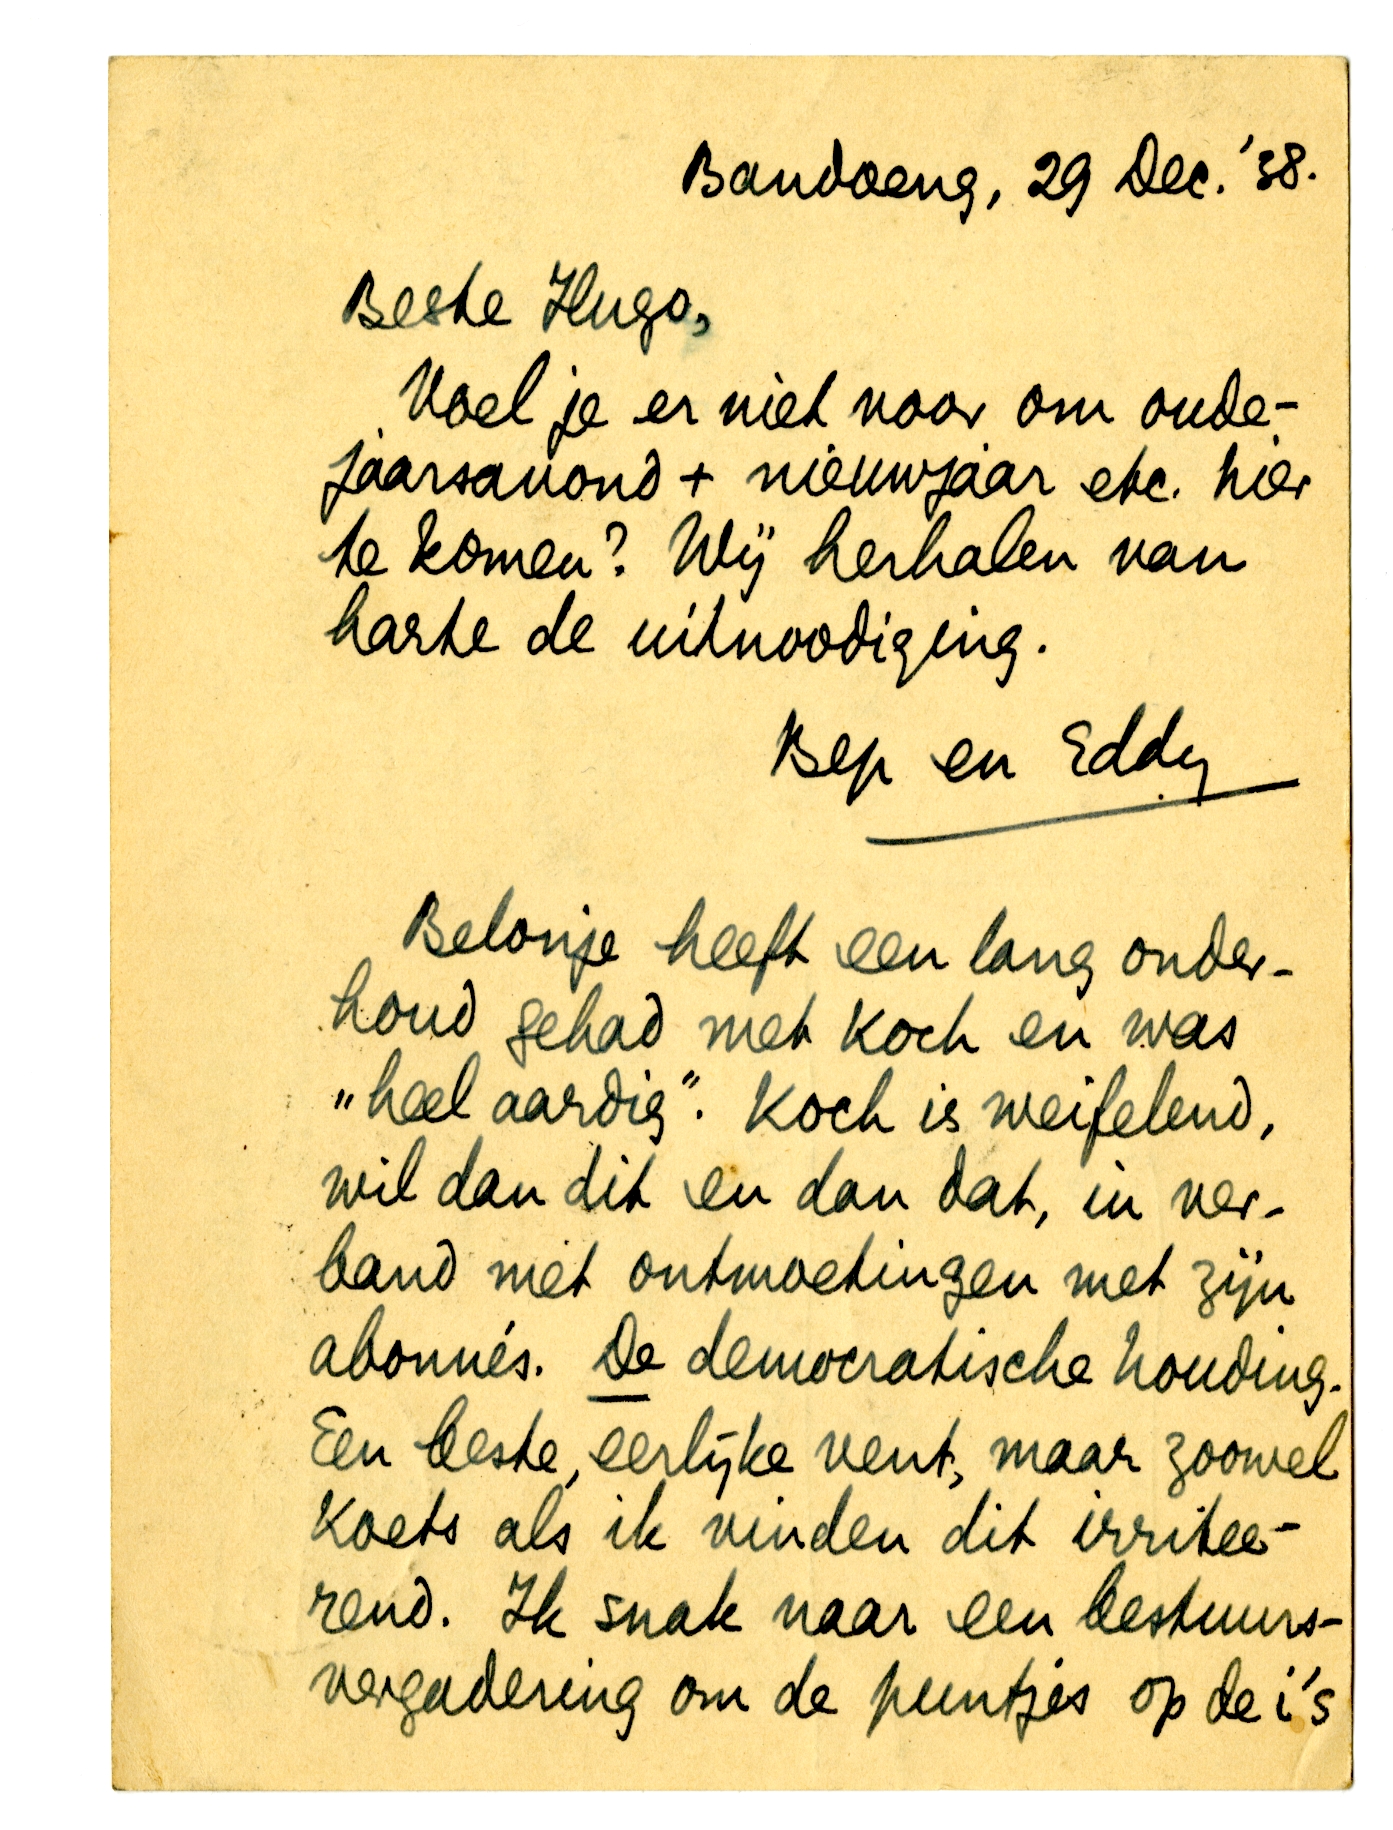 Bandoeng, 29 Dec. '38.
Beste Hugo,
Voel je er niet voor om oude-
jaarsavond + nieuwjaar etc. hier
te komen? Wij herhalen van
harte de uitnoodiging.
Bep en Eddy
Belonje heeft een lang onder-
houd gehad met Koch en was
„heel aardig”. Koch is weifelend,
wil dan dit en dan dat, in ver-
band met ontmoetingen met zijn
abonnés. De democratische houding.
Een beste, eerlijke vent, maar zoowel
Koets als ik vinden dit irritee-
rend. Ik snak naar een bestuurs-
vergadering om de puntjes op de i's